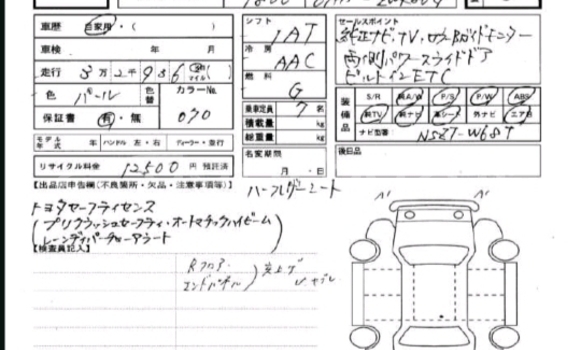 車歴 自家用・( )
シフト
IAT
セールスポイント
純正ナビTV、
両側パワースライドドア
ビルトインETC
車検 年 月
冷房
AAC
走行 3万2千936 マイル
燃料
G
色 パール
色替
カラーNo.
070
保証書 有・無
乗車定員 7 名
積載量 kg
総重量 kg
装備品
S/R 純A/W P/S P/W ABS
純TV 純ナビ 革シート 外ナビ エアB
ナビ型番 NSZT-W68T
モデル年式 年 ハンドル 左・右 ディーラー・並行
名変期限
月 日
後日品
リサイクル料金 12500 円 預託済
【出品店申告欄(不良箇所・欠品・注意事項等)】
ハーフレザーシート
トヨタセーフティセンス
(プリクラッシュセーフティ・オートマチックハイビーム)
レーンディパーチャーアラート
【検査員記入】
Rフロア
エンドパネル
突上ゲ